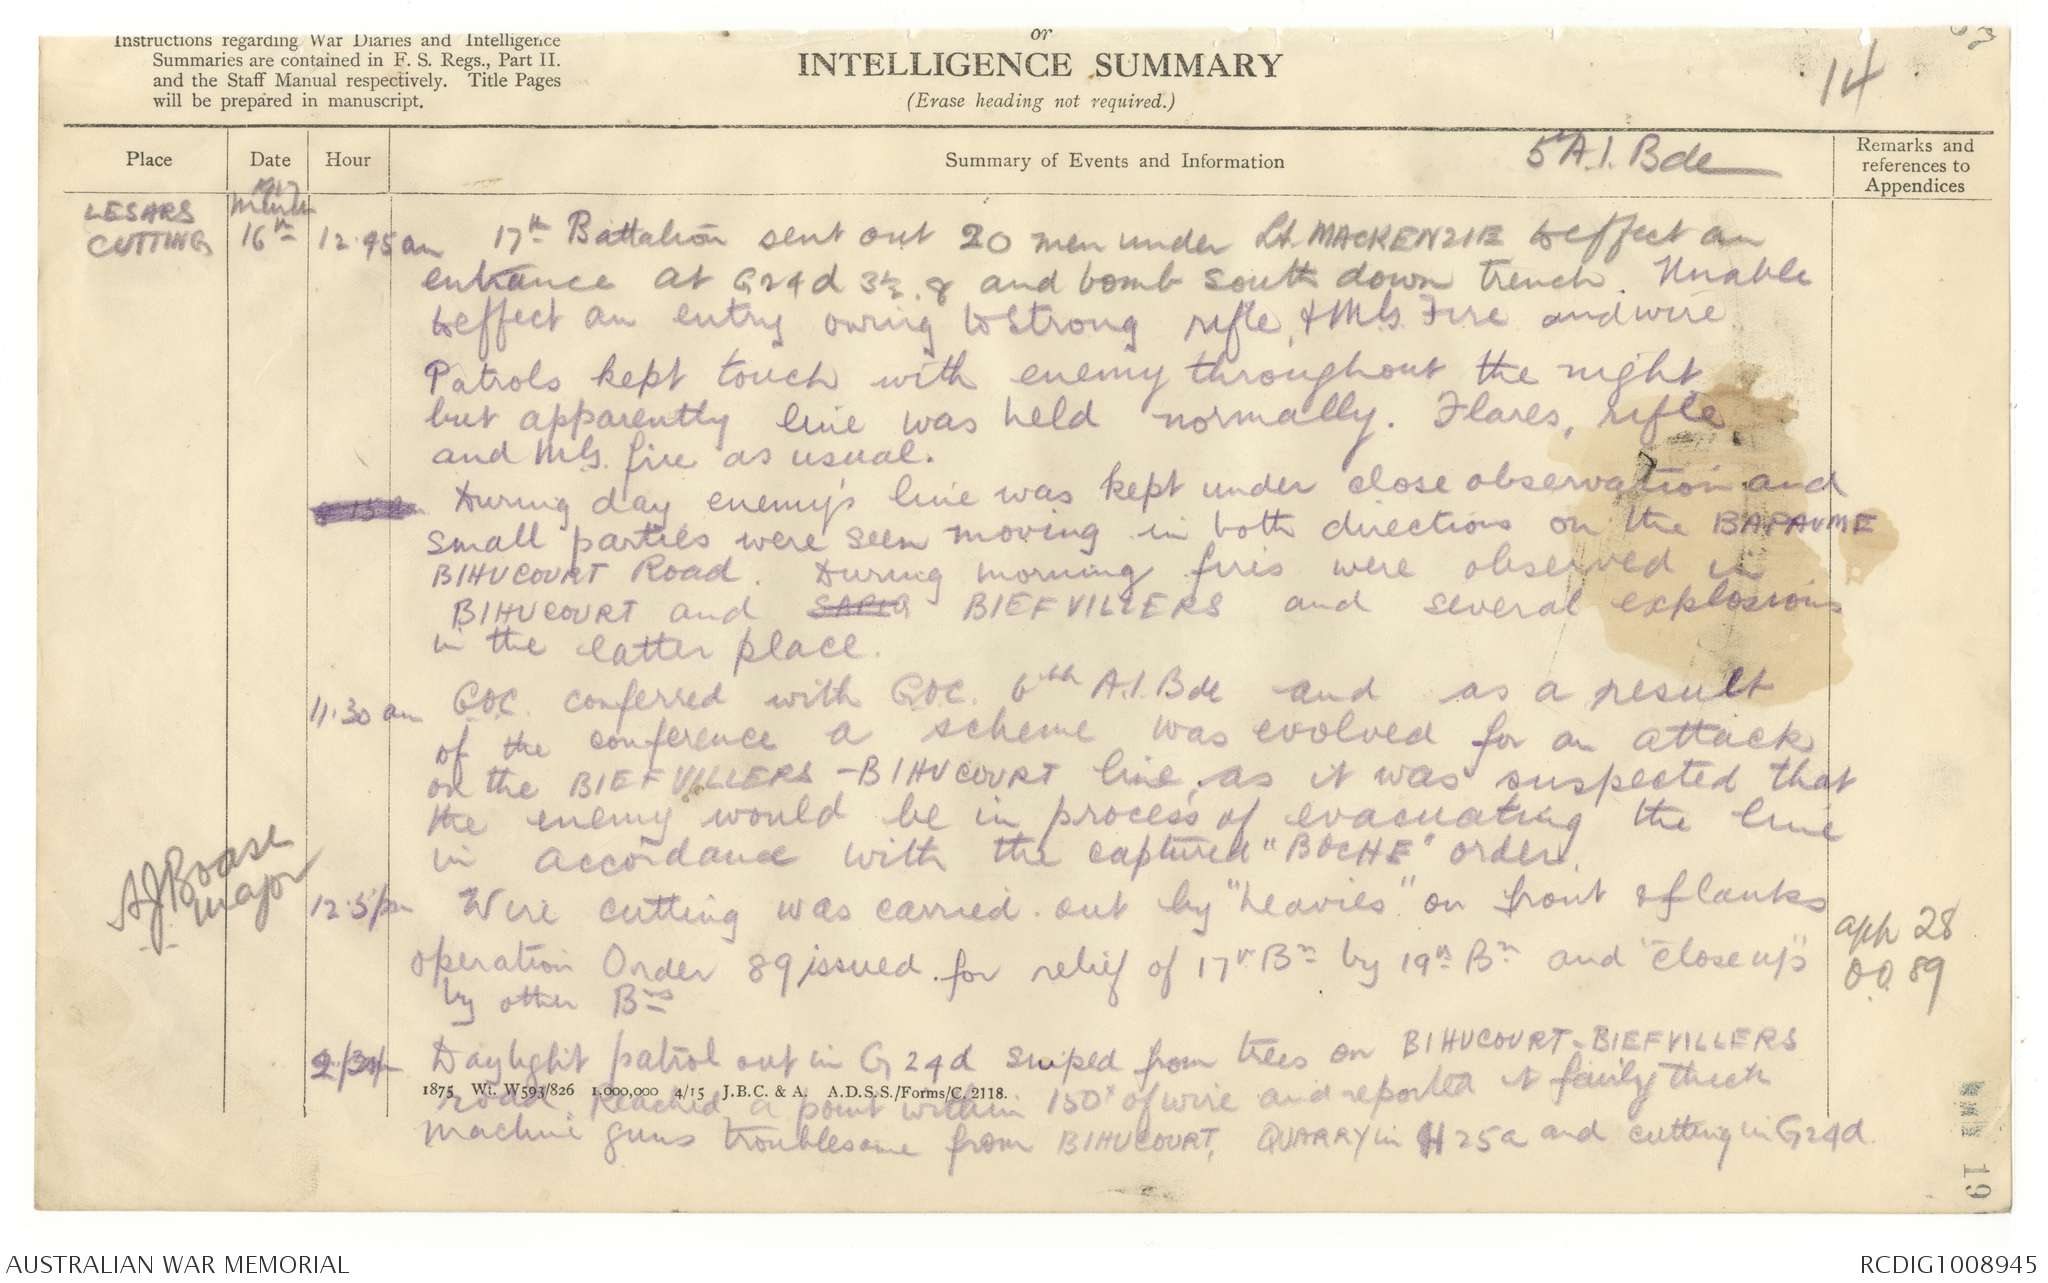 Instructions regarding War Diaries and Intelligence
Summaries are contained in F. S. Regs., Part II.
and the Staff Manual respectively. Title Pages
will be prepared in manuscript.
or
INTELLIGENCE SUMMARY
(Erase heading not required.)
14
Place
Date
Hour
Summary of Events and Information
5th A.I. Bde
Remarks and
references to
Appendices
LESARS
CUTTING
1917
March
16th
12.45 am
17th Battalion sent out 20 men under Lt. MACKENZIE to effect an
entrance at G24d 3½.8 and bomb south down trench. Unable
to effect an entry owing to strong rifle, & M.G. Fire and wire
Patrols kept touch with enemy throughout the night,
but apparently line was held normally. Flares, rifle
and M.G. fire as usual.
During day enemy's line was kept under close observation and
small parties were seen moving in both directions on the BAPAUME
BIHUCOURT Road. During morning fires were observed in
BIHUCOURT and BIEFVILLERS and several explosions
in the latter place.
11.30 am
G.O.C. conferred with G.O.C. 6th A.I. Bde and as a result
of the conference a scheme was evolved for an attack
on the BIEFVILLERS - BIHUCOURT line, as it was suspected that
the enemy would be in process of evacuating the line
in accordance with the captured "BOCHE" order.
A J Boase
major
12.5 pm
Wire cutting was carried out by "heavies" on front & flanks
operation Order 89 issued for relief of 17th Bn by 19th Bn and "close up"
by other Bns
app 28
O.O. 89
2.30 pm
Daylight patrol out in G 24d sniped from trees on BIHUCOURT - BIEFVILLERS
road. Reached a point within 150x of wire and reported it fairly thick
machine guns troublesome from BIHUCOURT, QUARRY in H 25a and cutting in G24d
1875 Wt. W593/826 1,000,000 4/15 J.B.C. & A. A.D.S.S./Forms/C. 2118.
19
AUSTRALIAN WAR MEMORIAL
RCDIG1008945